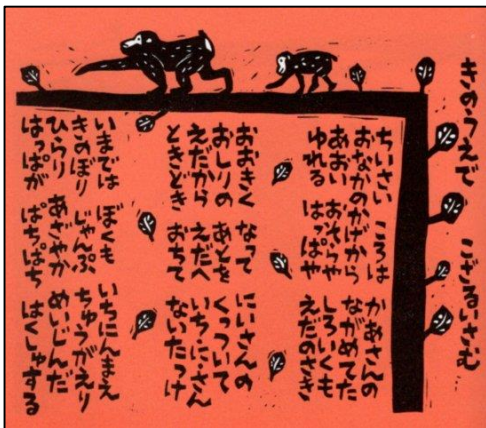 きのうえで　こざるいさむ
ちいさい　ころは　かあさんの
おなかのかげから　ながめてた
あおい　おそらや　しろいくも
ゆれる　はっぱや　えだのさき
おおきく　なって　にいさんの
おしりの　あとを　くっついて
えだから　えだへ　いち・に・さん
ときどき　おちて　ないたっけ
いまでは　ぼくも　いちにんまえ
きのぼり　じゃんぷ　ちゅうがえり
ひらり　あざやか　めいじんだ
はっぱが　ぱちぱち　はくしゅする